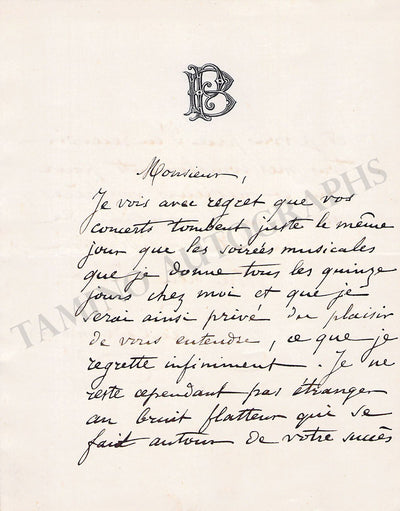 PB
Monsieur,
Je vois avec regret que vos
concerts tombent juste le même
jour que les soirées musicales
que je donne tous les quinze
jours chez moi et que je
serai ainsi privé du plaisir
de vous entendre, ce que je
regrette infiniment. Je ne
reste cependant pas étranger
au bruit flatteur qui se
fait autour de votre succès
TAMINO AUTOGRAPHS